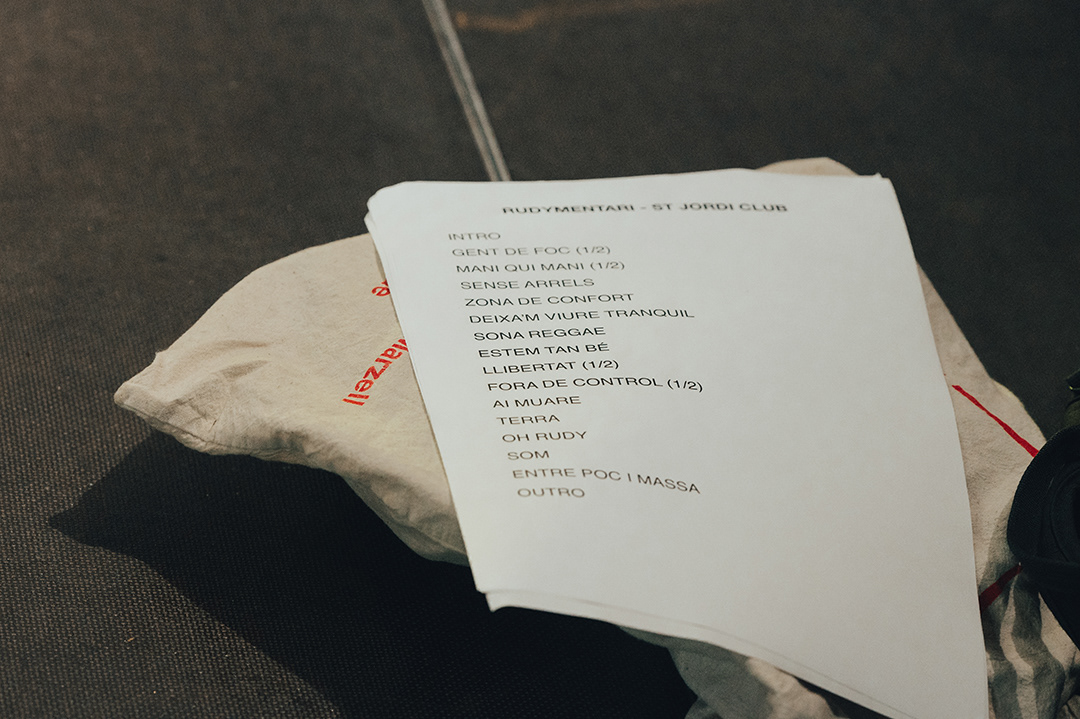 RUDYMENTARI - ST JORDI CLUB
INTRO
GENT DE FOC (1/2)
MANI QUI MANI (1/2)
SENSE ARRELS
ZONA DE CONFORT
DEIXA'M VIURE TRANQUIL
SONA REGGAE
ESTEM TAN BÉ
LLIBERTAT (1/2)
FORA DE CONTROL (1/2)
AI MUARE
TERRA
OH RUDY
SOM
ENTRE POC I MASSA
OUTRO
Marzell